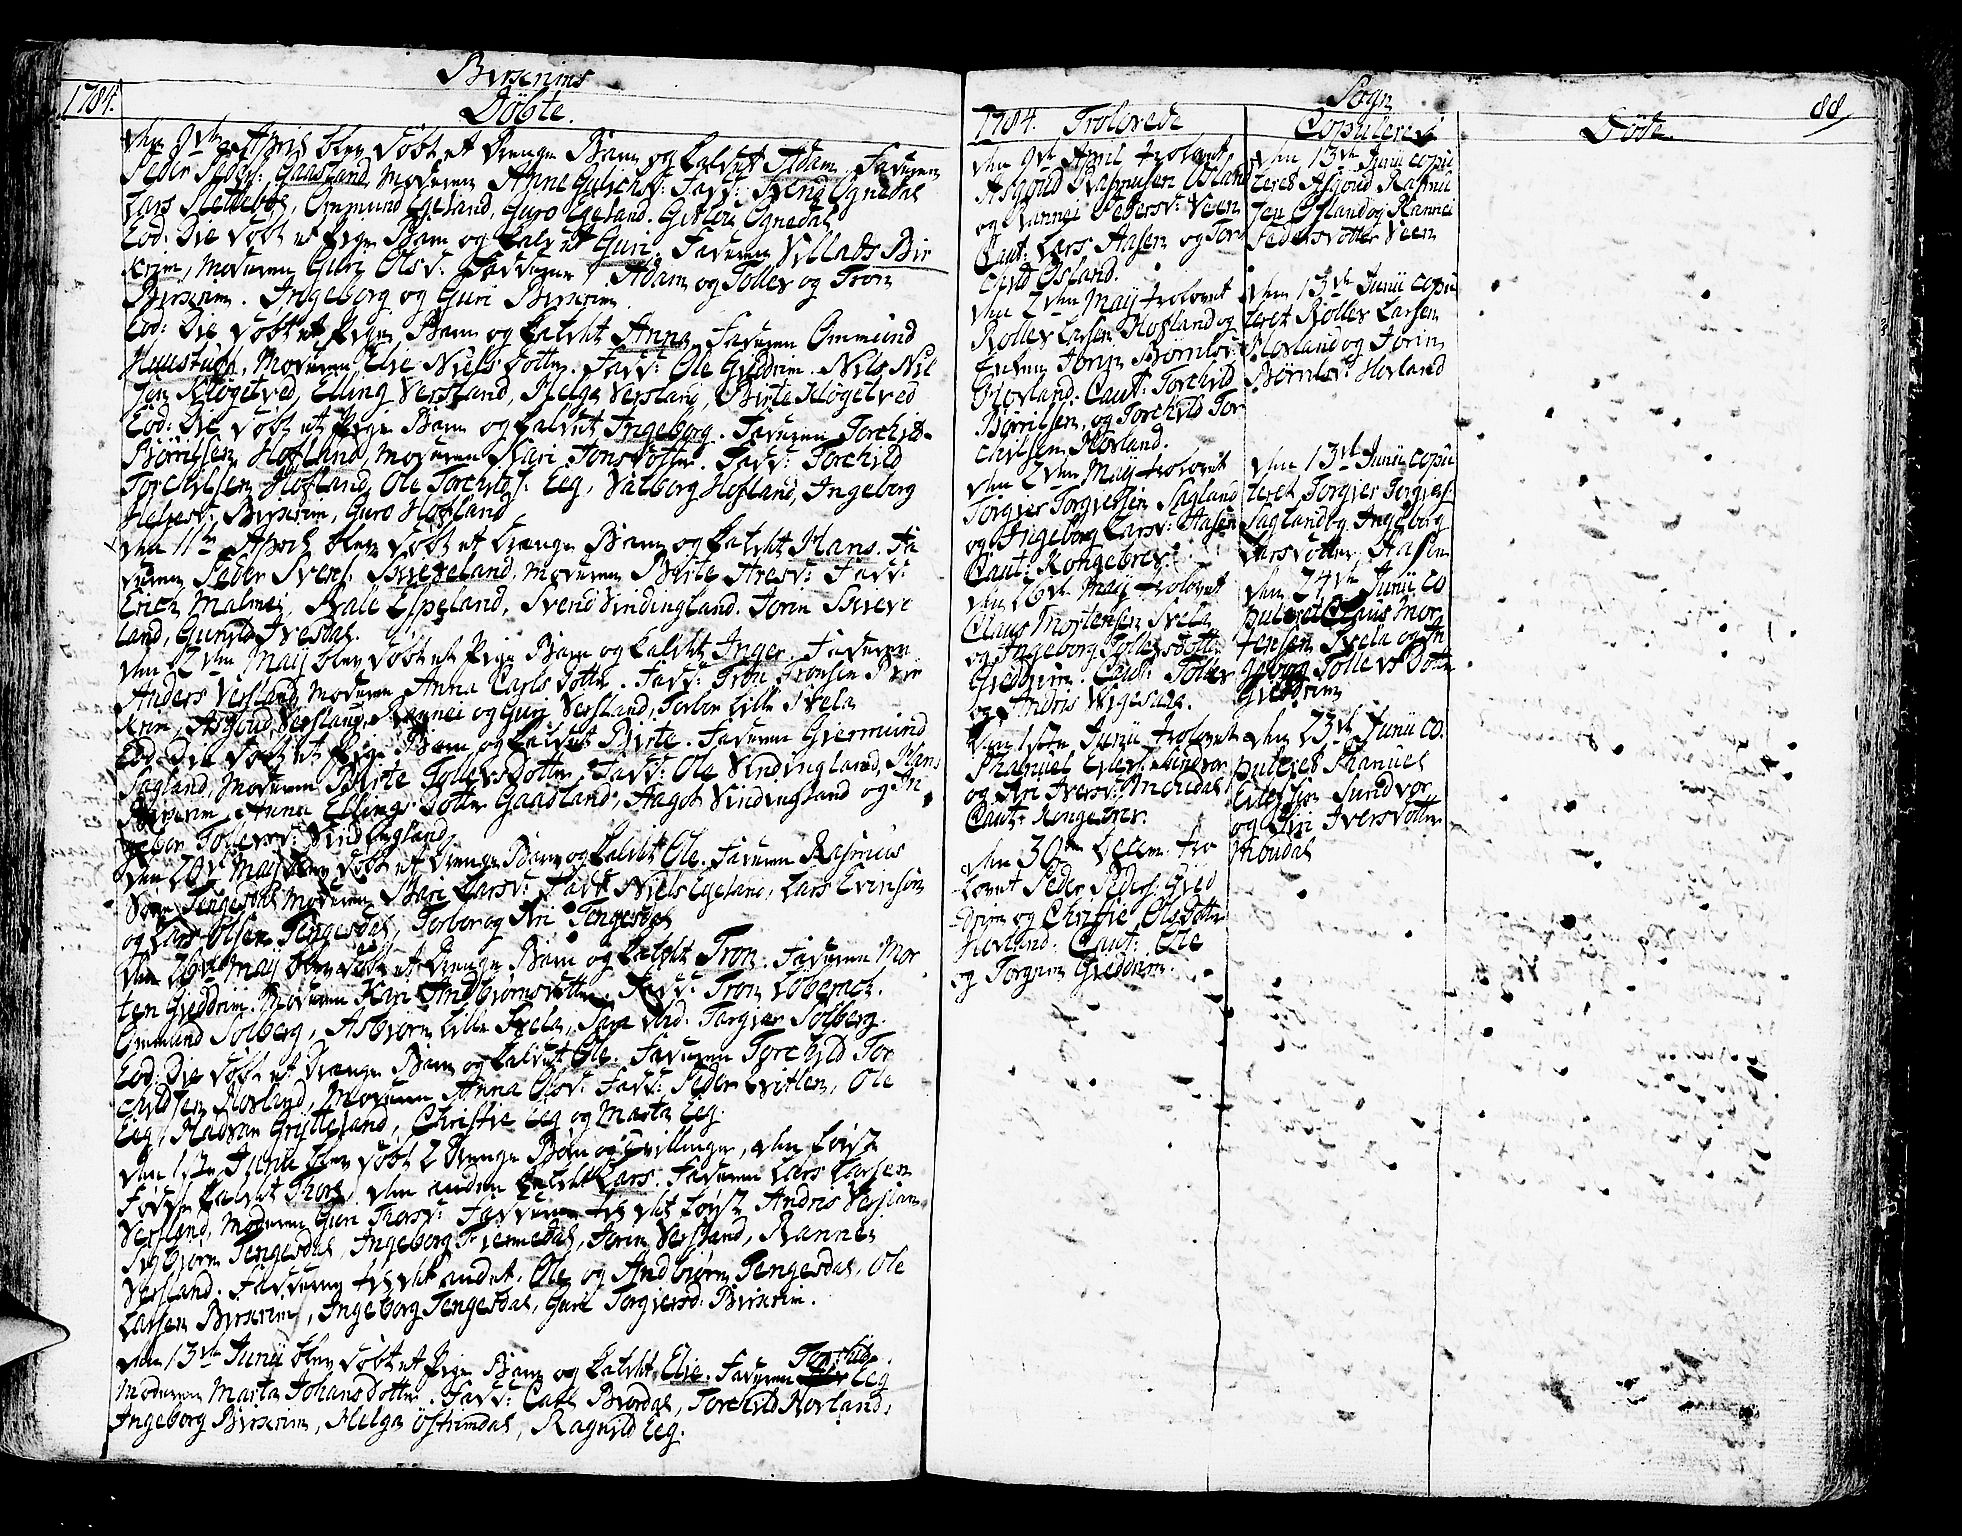 Birkrims
1784.
Döbte.
den 9de April blev döbt et Drenge Barn og kaldet Adam, Faderen
Peder Peders: Gaasland, Moderen Anne Gulichsd: Fadd: Svend Ognedal
Lars Sletteböe, Ommund Egeland, Guro Egeland. Gitlou Ognedal
Eod: Die döbt et Pige Barn og kaldet Guri. Faderen Villads Bir
krim, Moderen Guri Olsd: Fadderne Adam og Tollev og Tron
Birkrim. Ingeborg og Guri Birkrim
Eod: Die döbt et Pige Barn og kaldet Anna, Faderen Ommund
Moderen Else Niels Dotter. Fadd: Ole Gieddrim. Nils Nil
sen Klögetved, Elling Versland, Helga Versland, Birte Klögetved
Eod: Die döbt et Pige Barn og kaldet Ingeborg. Faderen Torchild
Börrilsen Hofland, Moderen Kari Jonsdotter. Fadd: Torchild
Torchilsen Hofland, Ole Torchilds: Eeg, Valborg Hofland, Ingeborg
Birkrim, Guro Hofland
den 11te April blev döbt et Drenge Barn og kaldet Hans. Fa
deren Peder Svens: Moderen Birte Aresd: Fadd:
Erich Malmei, Svale Espeland, Svend Vindingland. Jorin
land, Gunild Ivesdal.
den 2den May blev döbt et Pige Barn og kaldet Inger. Faderen
Anders Versland, Moderen Anna Carls Dotter. Fadd: Tron Tronsen Bir
krim, Asgoud Versland, Rannei og Guri Versland, Torbor Lille Svela
Eod: Die döbt et Pige Barn og kaldet Birte. Faderen Giermund
Sagland, Moderen Birte Tollevsdotter, Fadd: Ole Vindingland, Hans
Anna Ellings Dotter Gaadland, Aagot Vindingland og In
gebor Tollevsd: Vindingland
den 20de May blev döbt et Drenge Barn og kaldet Ole. Faderen Rasmus
Tengesdal Moderen Larsd: Fadd: Niels Egeland, Lars Evinsön
og Lars Olsen Tengesdal, Torbor og Ari Tengesdal
den 26de May blev döbt et Drenge Barn og kaldet Tron. Faderen Mor
ten Gieddrim. Moderen Kari Andbiörnsdotter. Fadd: Tron Löberack.
Ommund Solberg, Asbiörn Lille Svela, Torgier Solberg.
Eod: Die döbt et Drenge Barn og kaldet Ole. Faderen Torchild Tor
childsen Hovland, Moderen Anna Olsd: Fadd: Peder Ole
Eeg, Madvan Gristteland, Christie Eeg og Marta Eeg.
den 13de Junii blev döbt 2 Drenge Börn og Tvillinger, den först
Födde kaldet Thore, den anden kaldet Lars. Faderen Lars Larsen
Versland, Moderen Guri Thorsd: Fadderne til det först Andris
Asbiorn Tengesdal, Ingeborg Fiermedal, Jorin Versland, Rannei
Versland. Fadderne til det andet. Ole og Andbiörn Tengesdal, Ole
Larsen Birkrim, Ingeborg Tengesdal, Guri Torgiersd: Birkrim.
den 13de Junii blev döbt et Pige Barn og kaldet Else. Faderen Torchild Eeg
Moderen Marta Johans Dotter. Fadd: Carl Biordal, Torchild Hovland,
Ingeborg Birkrim, Helga Östrimdal, Ragnild Eeg.
Sogn
88
1784. Trolovede
den 9de April trolovet
Asgoud Rasmusen Osland
og Rannei Pedersd: Veen
Caut: Lars Aasen og Tor
child Osland.
den 2den May trolovet
Rollev Larsen Hovland og
Enken Jorin Börrilsd:
Hovland. Caut: Torchild
Börrilsen, og Torchild Tor
chilsen Hovland.
den 2den May trolovet
Torgier Torgiersen Sagland
og Ingeborg Larsd: Aasen
Caut: Kongebrev.
den 26de May trolovet
Claus Mortensen Svela
og Ingeborg Tollevsdotter
Gieddrim. Caut: Tollev
og Andris
den 1ste Junii trolovet
Manuel Eilefs: Sundvor
og Ari Iversd: Moiedal
Caut: Kongebrev.
den 30te Decem: tro
lovet Peder Peders: Gied
drim og Christie Olsdotter
Hovland. Caut: Ole
og Torgrim Gieddrim.
Copulered
den 13de Junii copu
leret Asgoud Rasmu
sen Osland og Rannei
Pedersdotter Veen
den 13de Junii copu
leret Rollev Larsen
Hovland og Jorin
Börrilsd: Hovland
den 13de Junii copu
leret Torgier Torgiers:
Sagland og Ingeborg
Larsdotter Aasen
den 24de Junii co
puleret Claus Mor
tensen Svela og In
geborg Tollevs Dotter
Gieddrim
den 23de Junii co
puleret Manuel
Eilefsen Sundvor
og Ari Iversdotter
Moudal
Döde.